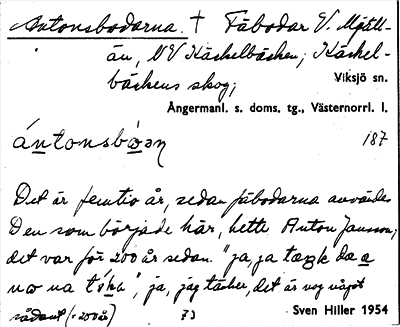 Antonsbodarna. † Fäbodar V. Mjäll-
ån, NV Käckelbäcken; Käckel-
bäckens skog; Viksjö sn.
Ångermanl. s. doms. tg., Västernorrl. l.
ántonsbòaņ 187
Det är femtio år, sedan fäbodarna användes
Den som började här, hette Anton Jansson;
det var för 200 år sedan. "ja, ja
", ja, jag täcker, det är nog något
sådant (= 200 år) 73 Sven Hiller 1954